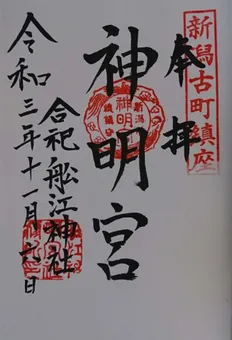 新潟古町鎮座
奉拝
神明宮
合祀船江神社
令和三年十一月六日